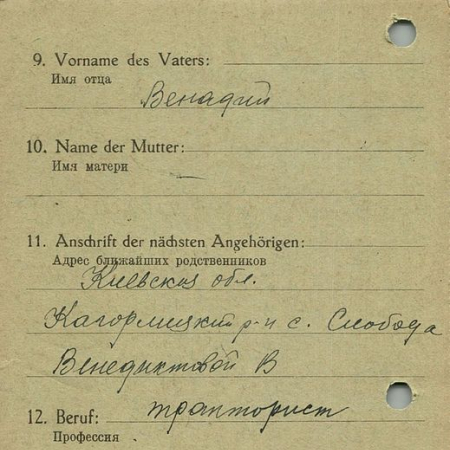 9. Vorname des Vaters:
Имя отца
Венадий
10. Name der Mutter:
Имя матери
—
11. Anschrift der nächsten Angehörigen:
Адрес ближайших родственников
Киевская обл.
Кагорлицкий р-н с. Слобода
Венедиктовой В
12. Beruf: тракторист
Профессия